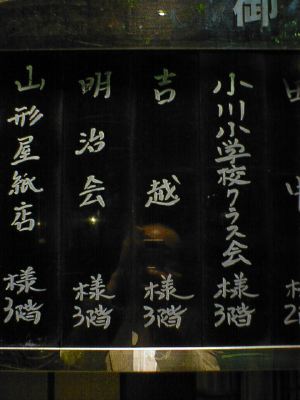 御
田中 様 2階
小川小学校クラス会 様 3階
吉越 様 3階
明治会 様 3階
山形屋紙店 様 3階